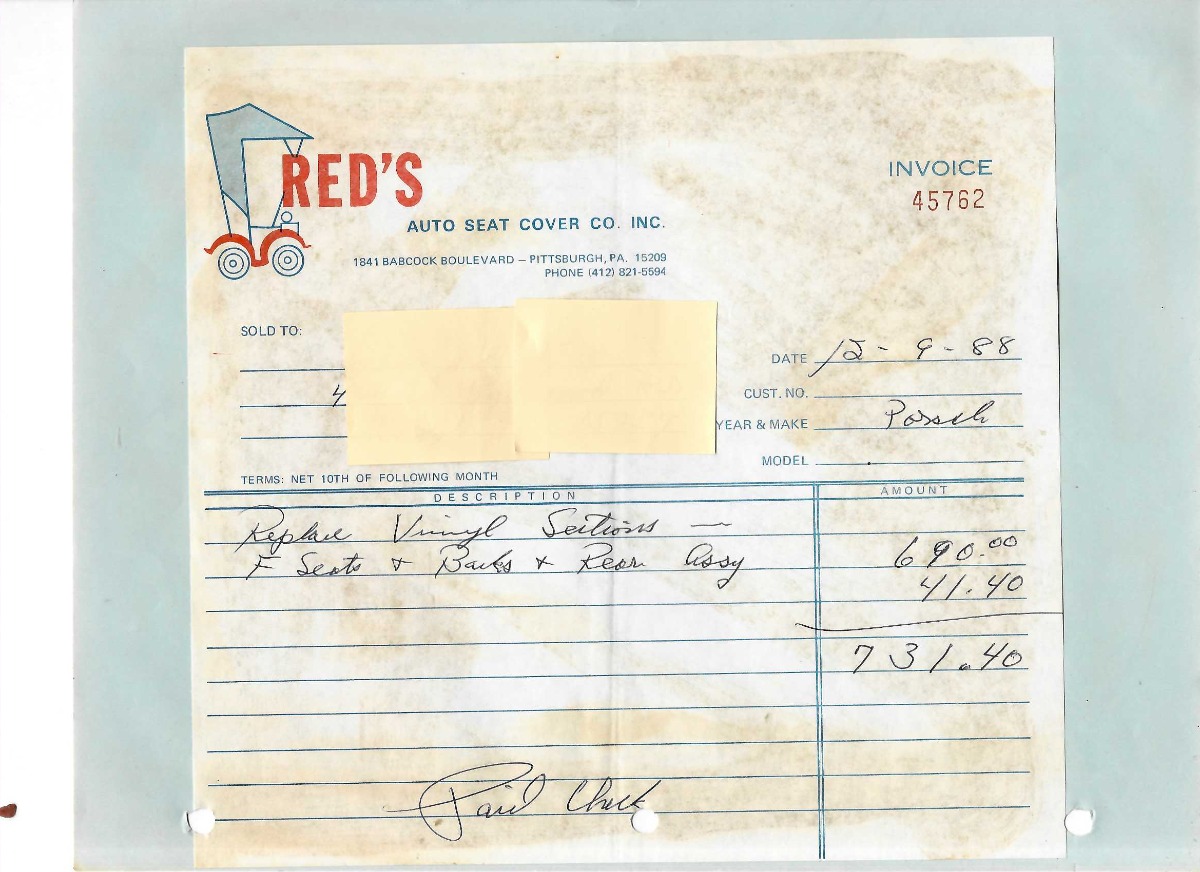 RED'S
AUTO SEAT COVER CO. INC.
1841 BABCOCK BOULEVARD – PITTSBURGH, PA. 15209
PHONE (412) 821-5594
INVOICE
45762
SOLD TO:
4
DATE 12 - 9 - 88
CUST. NO.
YEAR & MAKE Porsch
MODEL
TERMS: NET 10TH OF FOLLOWING MONTH
DESCRIPTION AMOUNT
Replace Vinyl Sections —
F Seats & Backs & Rear Assy 690.00
41.40
731.40
Paid Check